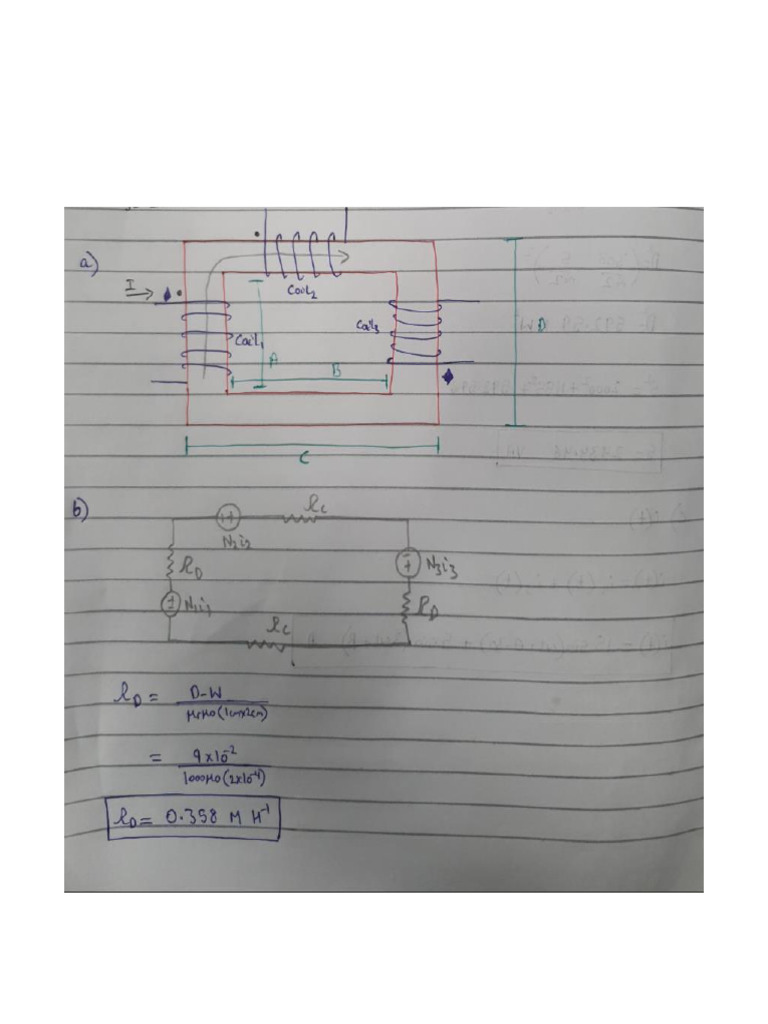 a)
I
Coil₂
Coil₁
Coil₃
A
B
D
C
b)
N₂i₂
R_C
R_D
N₁i₁
N₃i₃
R_D
R_C
R_D = D-W / μrμ0(1cm×2cm)
= 9×10⁻² / 1000μ0(2×10⁻⁴)
R_D = 0.358 M H⁻¹